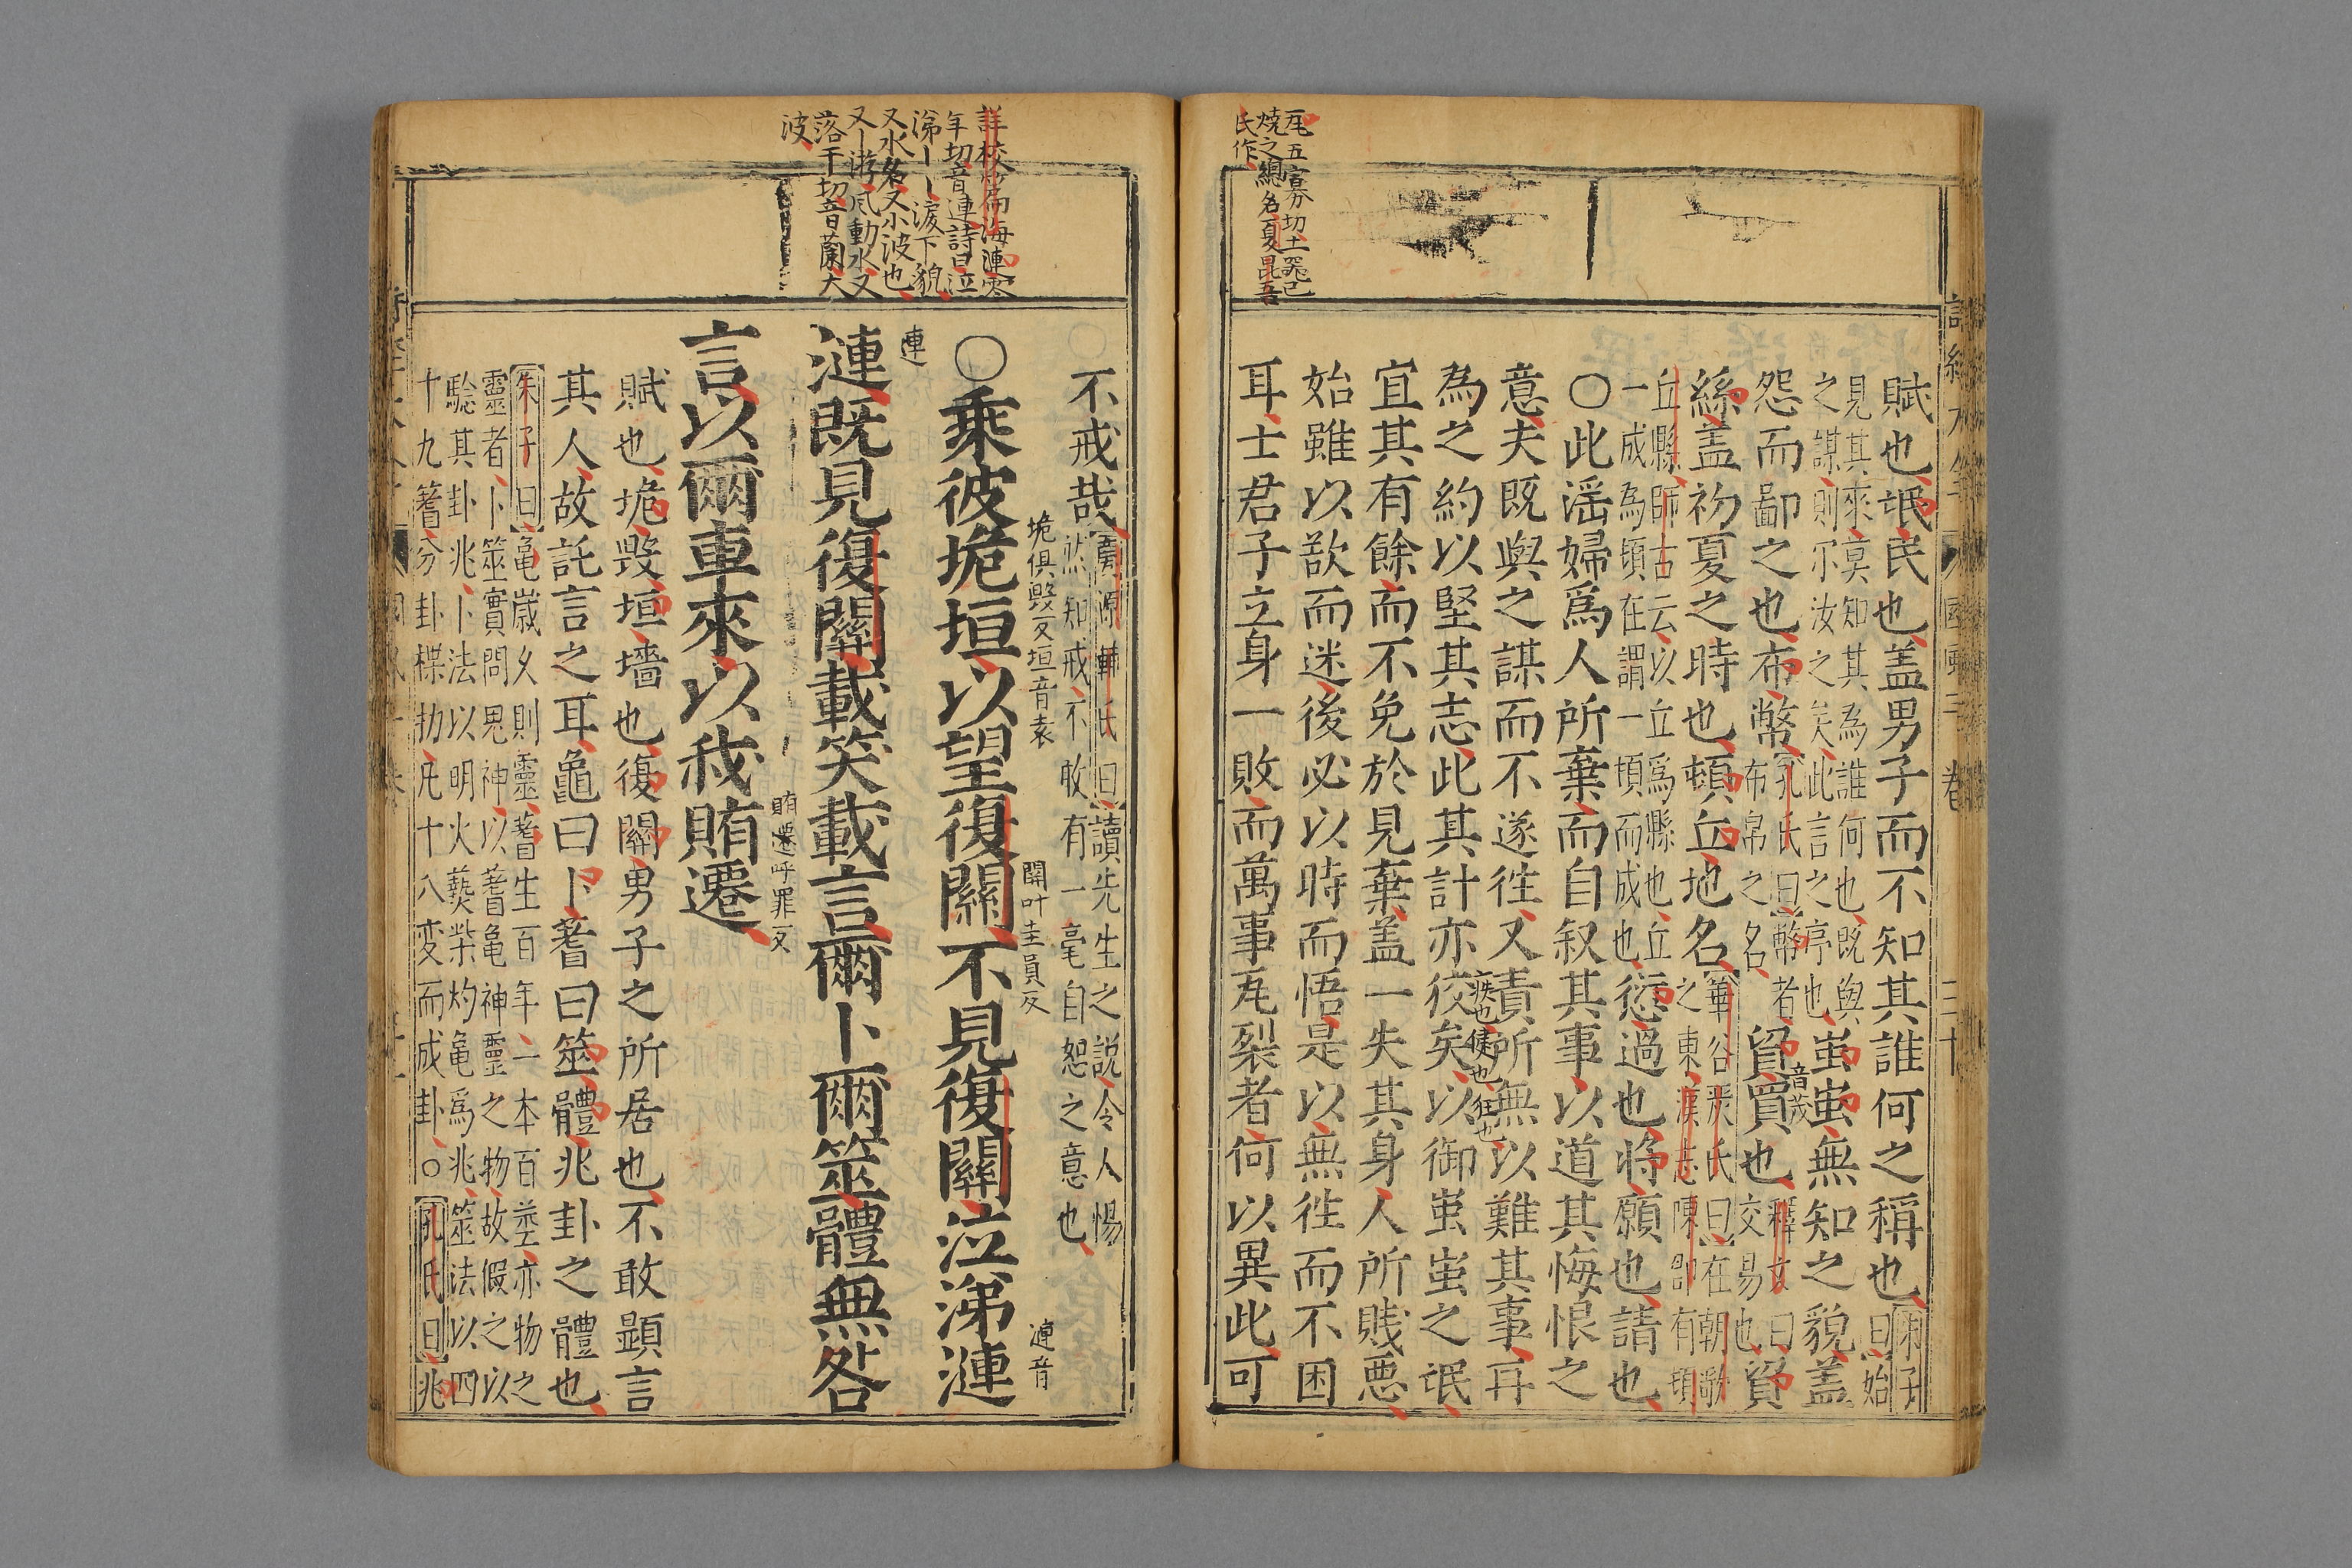 瓦五寡切土器已
燒之總名夏昆吾
氏作
賦也氓民也盖男子而不知其誰何之稱也朱子
曰始
見其來莫知其為誰何也既與
之謀則尓汝之矣此言之亭也蚩蚩無知之貌盖
怨而鄙之也布幣孔氏曰幣者
布帛之名貿買也釋文曰貿
交易也
音茂
絲盖初夏之時也頓丘地名華谷嚴氏曰在朝歌
之東漢志陳郡有頓
丘縣師古云以丘爲縣也丘
一成為頓在謂一頃而成也愆過也将願也請也
○此淫婦爲人所棄而自叙其事以道其悔恨之
意夫既與之謀而不遂徃又責所無以難其事再
為之約以堅其志此其計亦狡矣以御蚩蚩之氓
疾也健也狂也
宜其有餘而不免於見棄盖一失其身人所賤惡
始雖以欲而迷後必以時而悟是以無徃而不困
耳士君子立身一敗而萬事瓦裂者何以異此可
詳校
年切音連詩曰泣
涕丨丨淚下貌
又水名又小波也
又丨漪风動水又
落干切音蘭大
波
不戒哉輔氏曰讀先生之説令人惕
然知戒不敢有一毫自恕之意也
○乘彼垝垣以望復關不見復關泣涕漣
垝俱毁反垣音袁
關叶圭員反
漣音
連
漣既見復關載笑載言爾卜爾筮體無咎
言以爾車來以我賄遷
賄遷呼罪反
賦也垝毁垣墻也復關男子之所居也不敢顕言
其人故託言之耳龜曰卜蓍曰筮體兆卦之體也
朱子曰龜歲久則靈蓍生百年一本百莖亦物之
靈者卜筮實問鬼神以蓍龜神靈之物故假之以
驗其卦兆卜法以明火爇柴灼龜爲兆筮法以四
十九蓍分卦揲扐凡十八変而成卦○孔氏曰兆